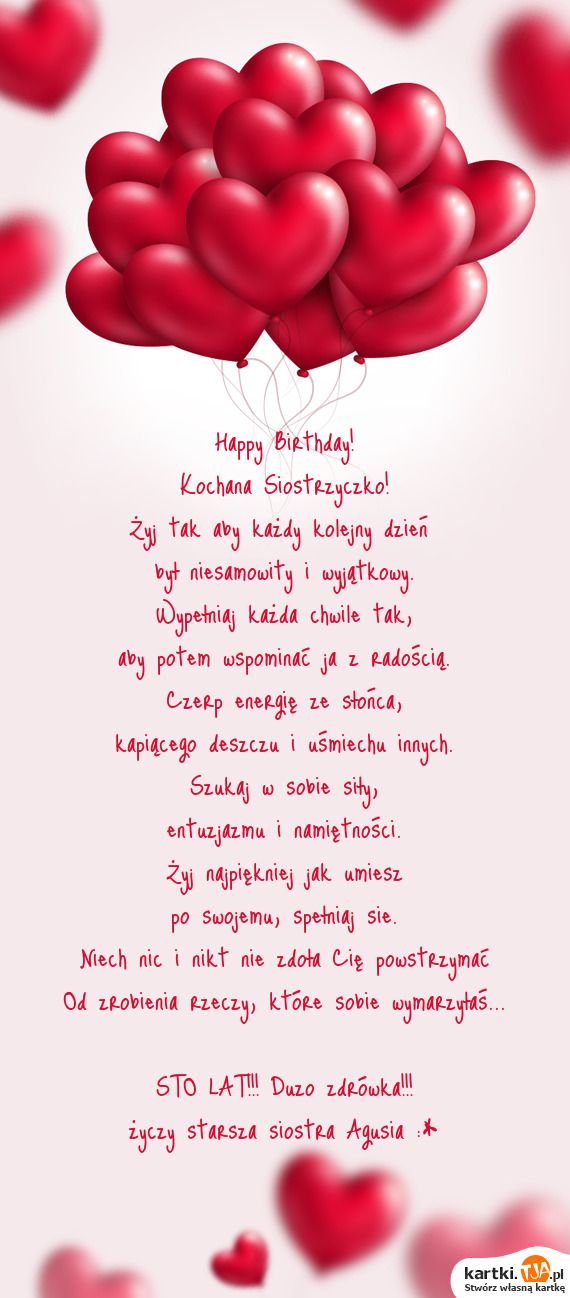 Happy Birthday!
Kochana Siostrzyczko!
Żyj tak aby każdy kolejny dzień
był niesamowity i wyjątkowy.
Wypełniaj każda chwile tak,
aby potem wspominać ja z radością.
Czerp energię ze słońca,
kapiącego deszczu i uśmiechu innych.
Szukaj w sobie siły,
entuzjazmu i namiętności.
Żyj najpiękniej jak umiesz
po swojemu, spełniaj sie.
Niech nic i nikt nie zdoła Cię powstrzymać
Od zrobienia rzeczy, które sobie wymarzyłaś...
STO LAT!!! Duzo zdrówka!!!
życzy starsza siostra Agusia :*
kartki.TJA.pl
Stwórz własną kartkę